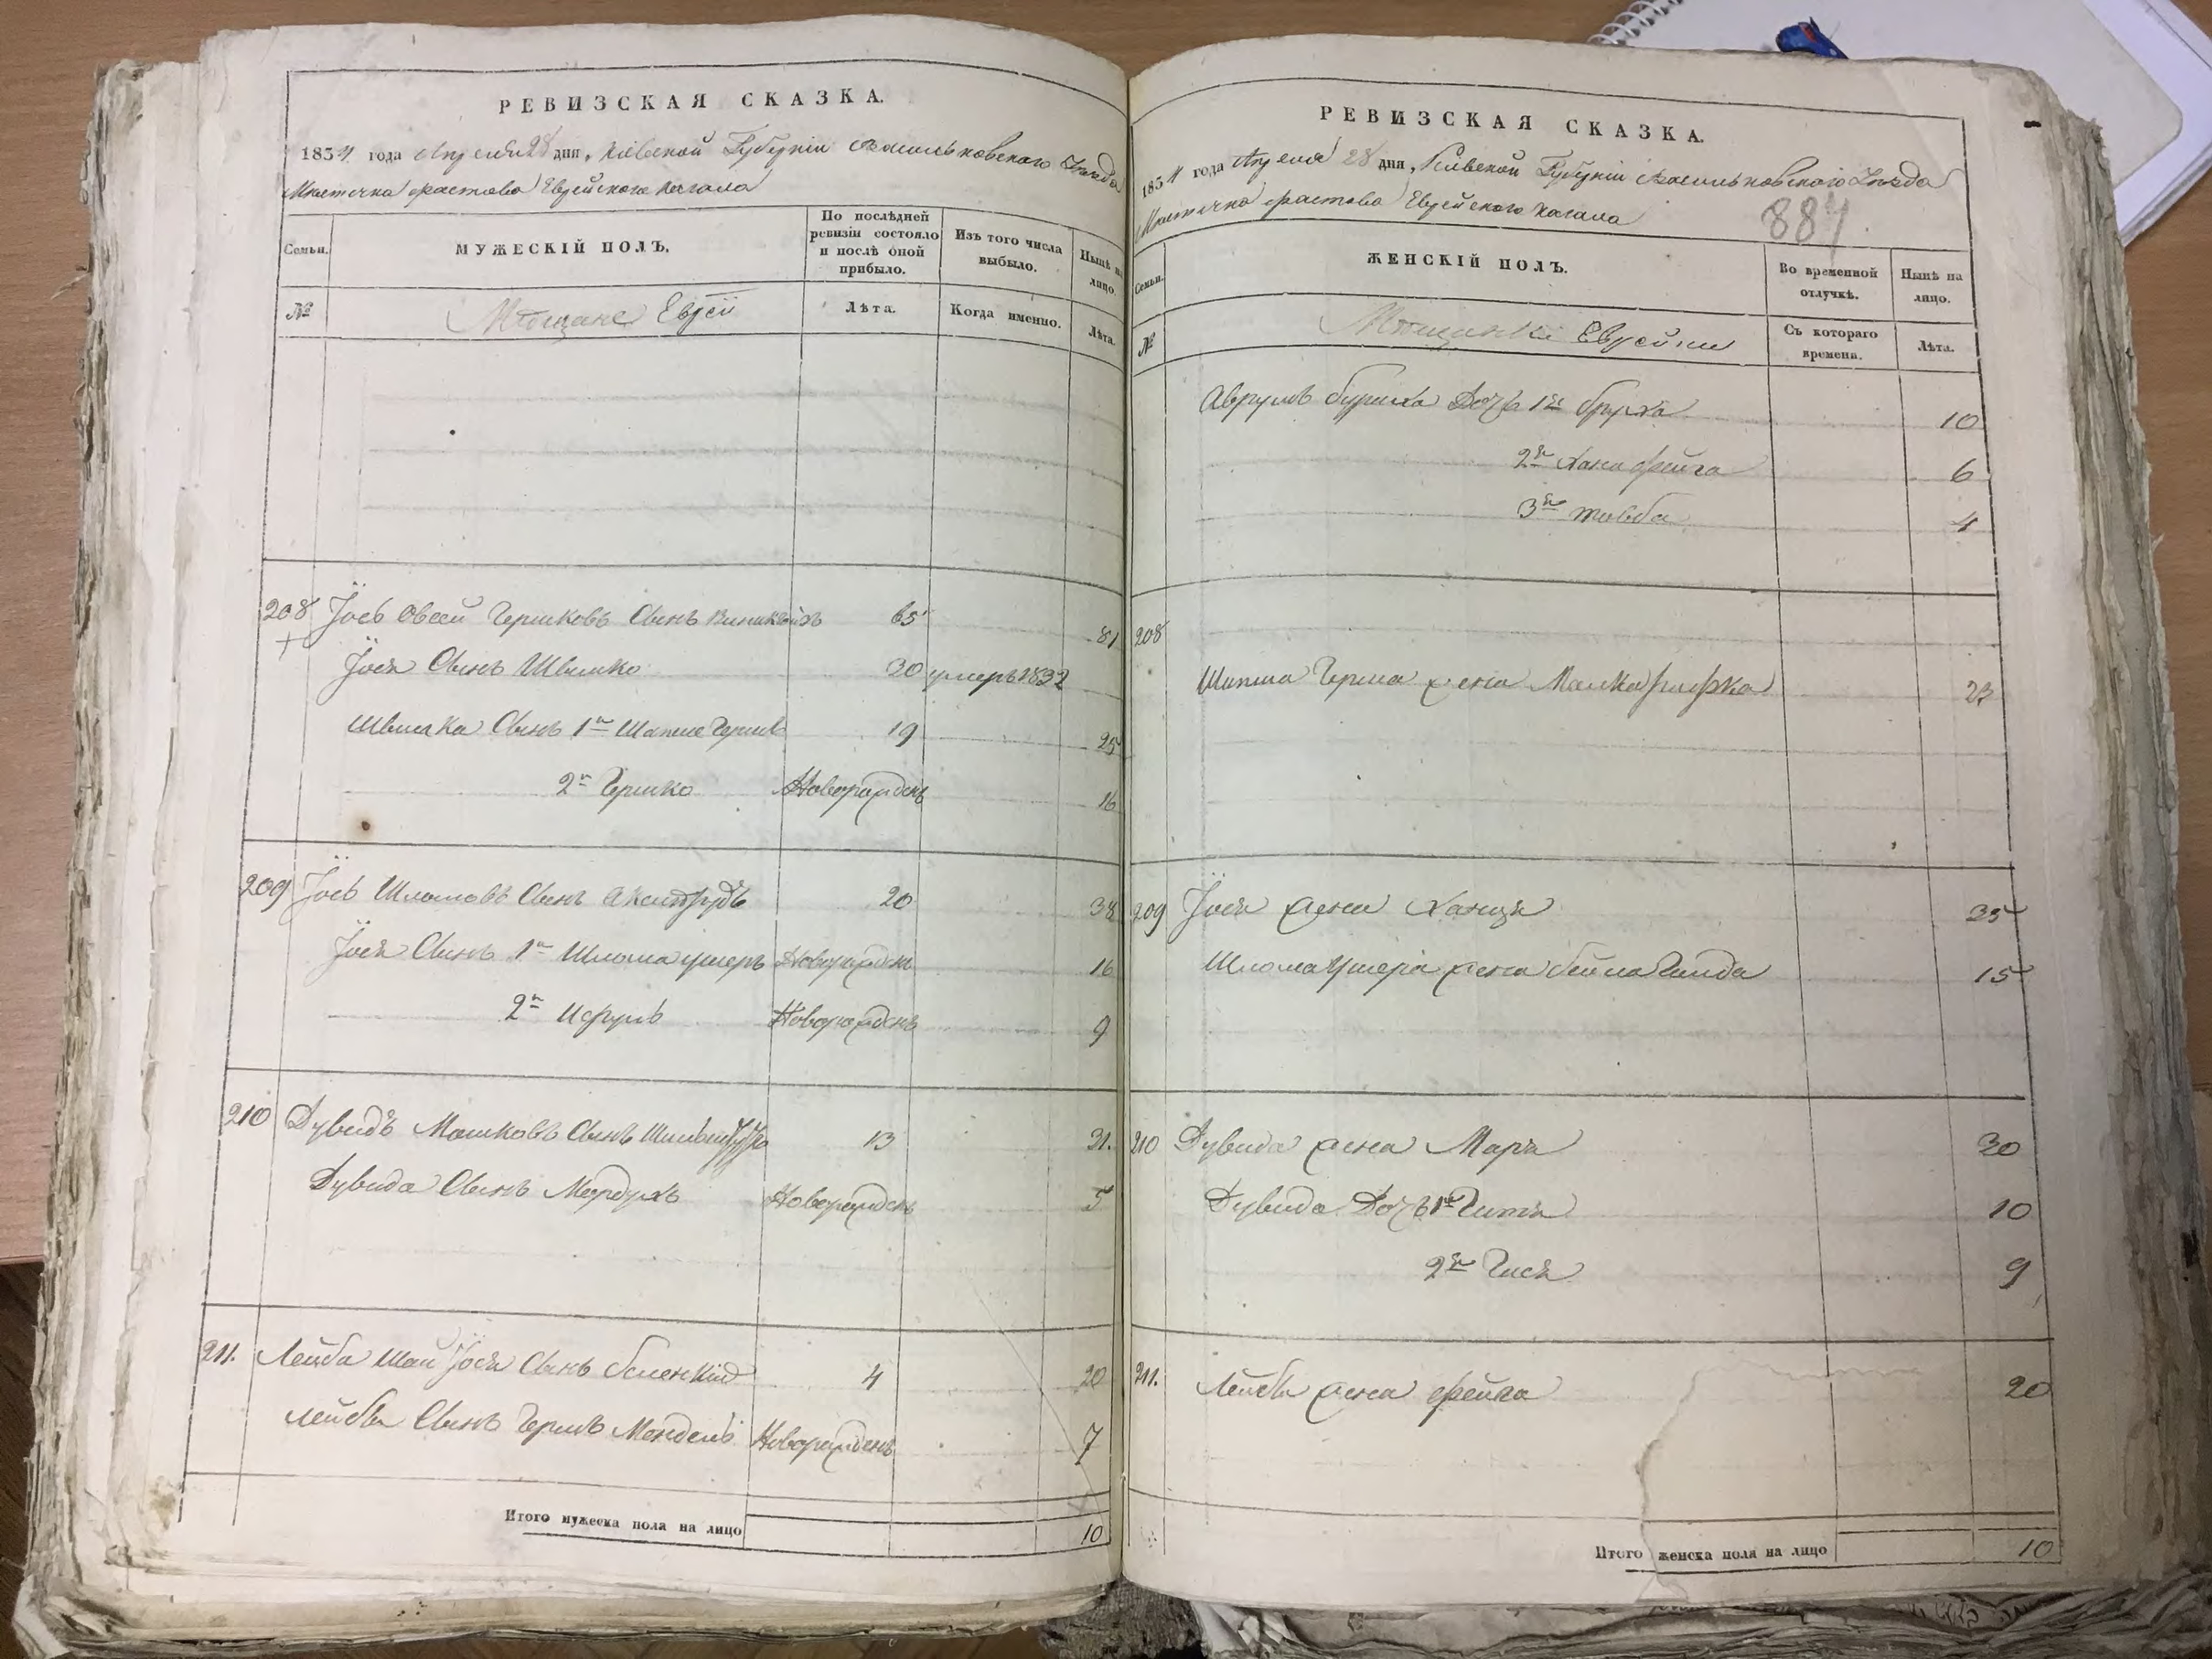 РЕВИЗСКАЯ СКАЗКА.
1854 года Апреля 28 дня, Кіевской Губерніи Васильковскаго Уѣзда
Мѣстечка Фастова Еврейскаго Кагала
Семьи. МУЖЕСКІЙ ПОЛЪ. По послѣдней ревизіи состояло и послѣ оной прибыло. Изъ того числа выбыло. Нынѣ на лицо.
№ Мѣщане Евреи Лѣта. Когда именно. Лѣта.
208 Іось Овсей Гершковъ Сынъ 65 81
Іося Сынъ Швилко 30 умеръ 1832
Сынъ 1й 19 25
2й Гершко Новорожденъ 16
209 Іось Шломовъ Сынъ 20 38
Іося Сынъ 1й Шлома Ушеръ Новорожденъ 16
2й Исрулъ Новорожденъ 9
210 Дувидъ Мошковъ Сынъ 13 31.
Дувида Сынъ Мордухъ Новорожденъ 5
211. Лейба Шай Іося Сынъ 4 20
Лейбы Сынъ Гершъ Мендель Новорожденъ 7
Итого мужеска пола на лицо 10
РЕВИЗСКАЯ СКАЗКА.
1854 года Апреля 28 дня, Кіевской Губерніи Васильковскаго Уѣзда
Мѣстечка Фастова Еврейскаго Кагала
887
Семьи. ЖЕНСКІЙ ПОЛЪ. Во временной отлучкѣ. Нынѣ на лицо.
№ Мѣщанки Еврейки Съ котораго времена. Лѣта.
Дочь 1я Бруха 10
2я Хана Фейга 6
3я Товба 4
208
Герша жена Малка 23
209 Іося жена Ханця 35
Шлома Ушера жена Бейла Гинда 15
210 Дувида жена Маря 30
Дувида Дочь 1я Гитя 10
2я Гися 9
211. Лейбы жена Фейга 20
Итого женска пола на лицо 10